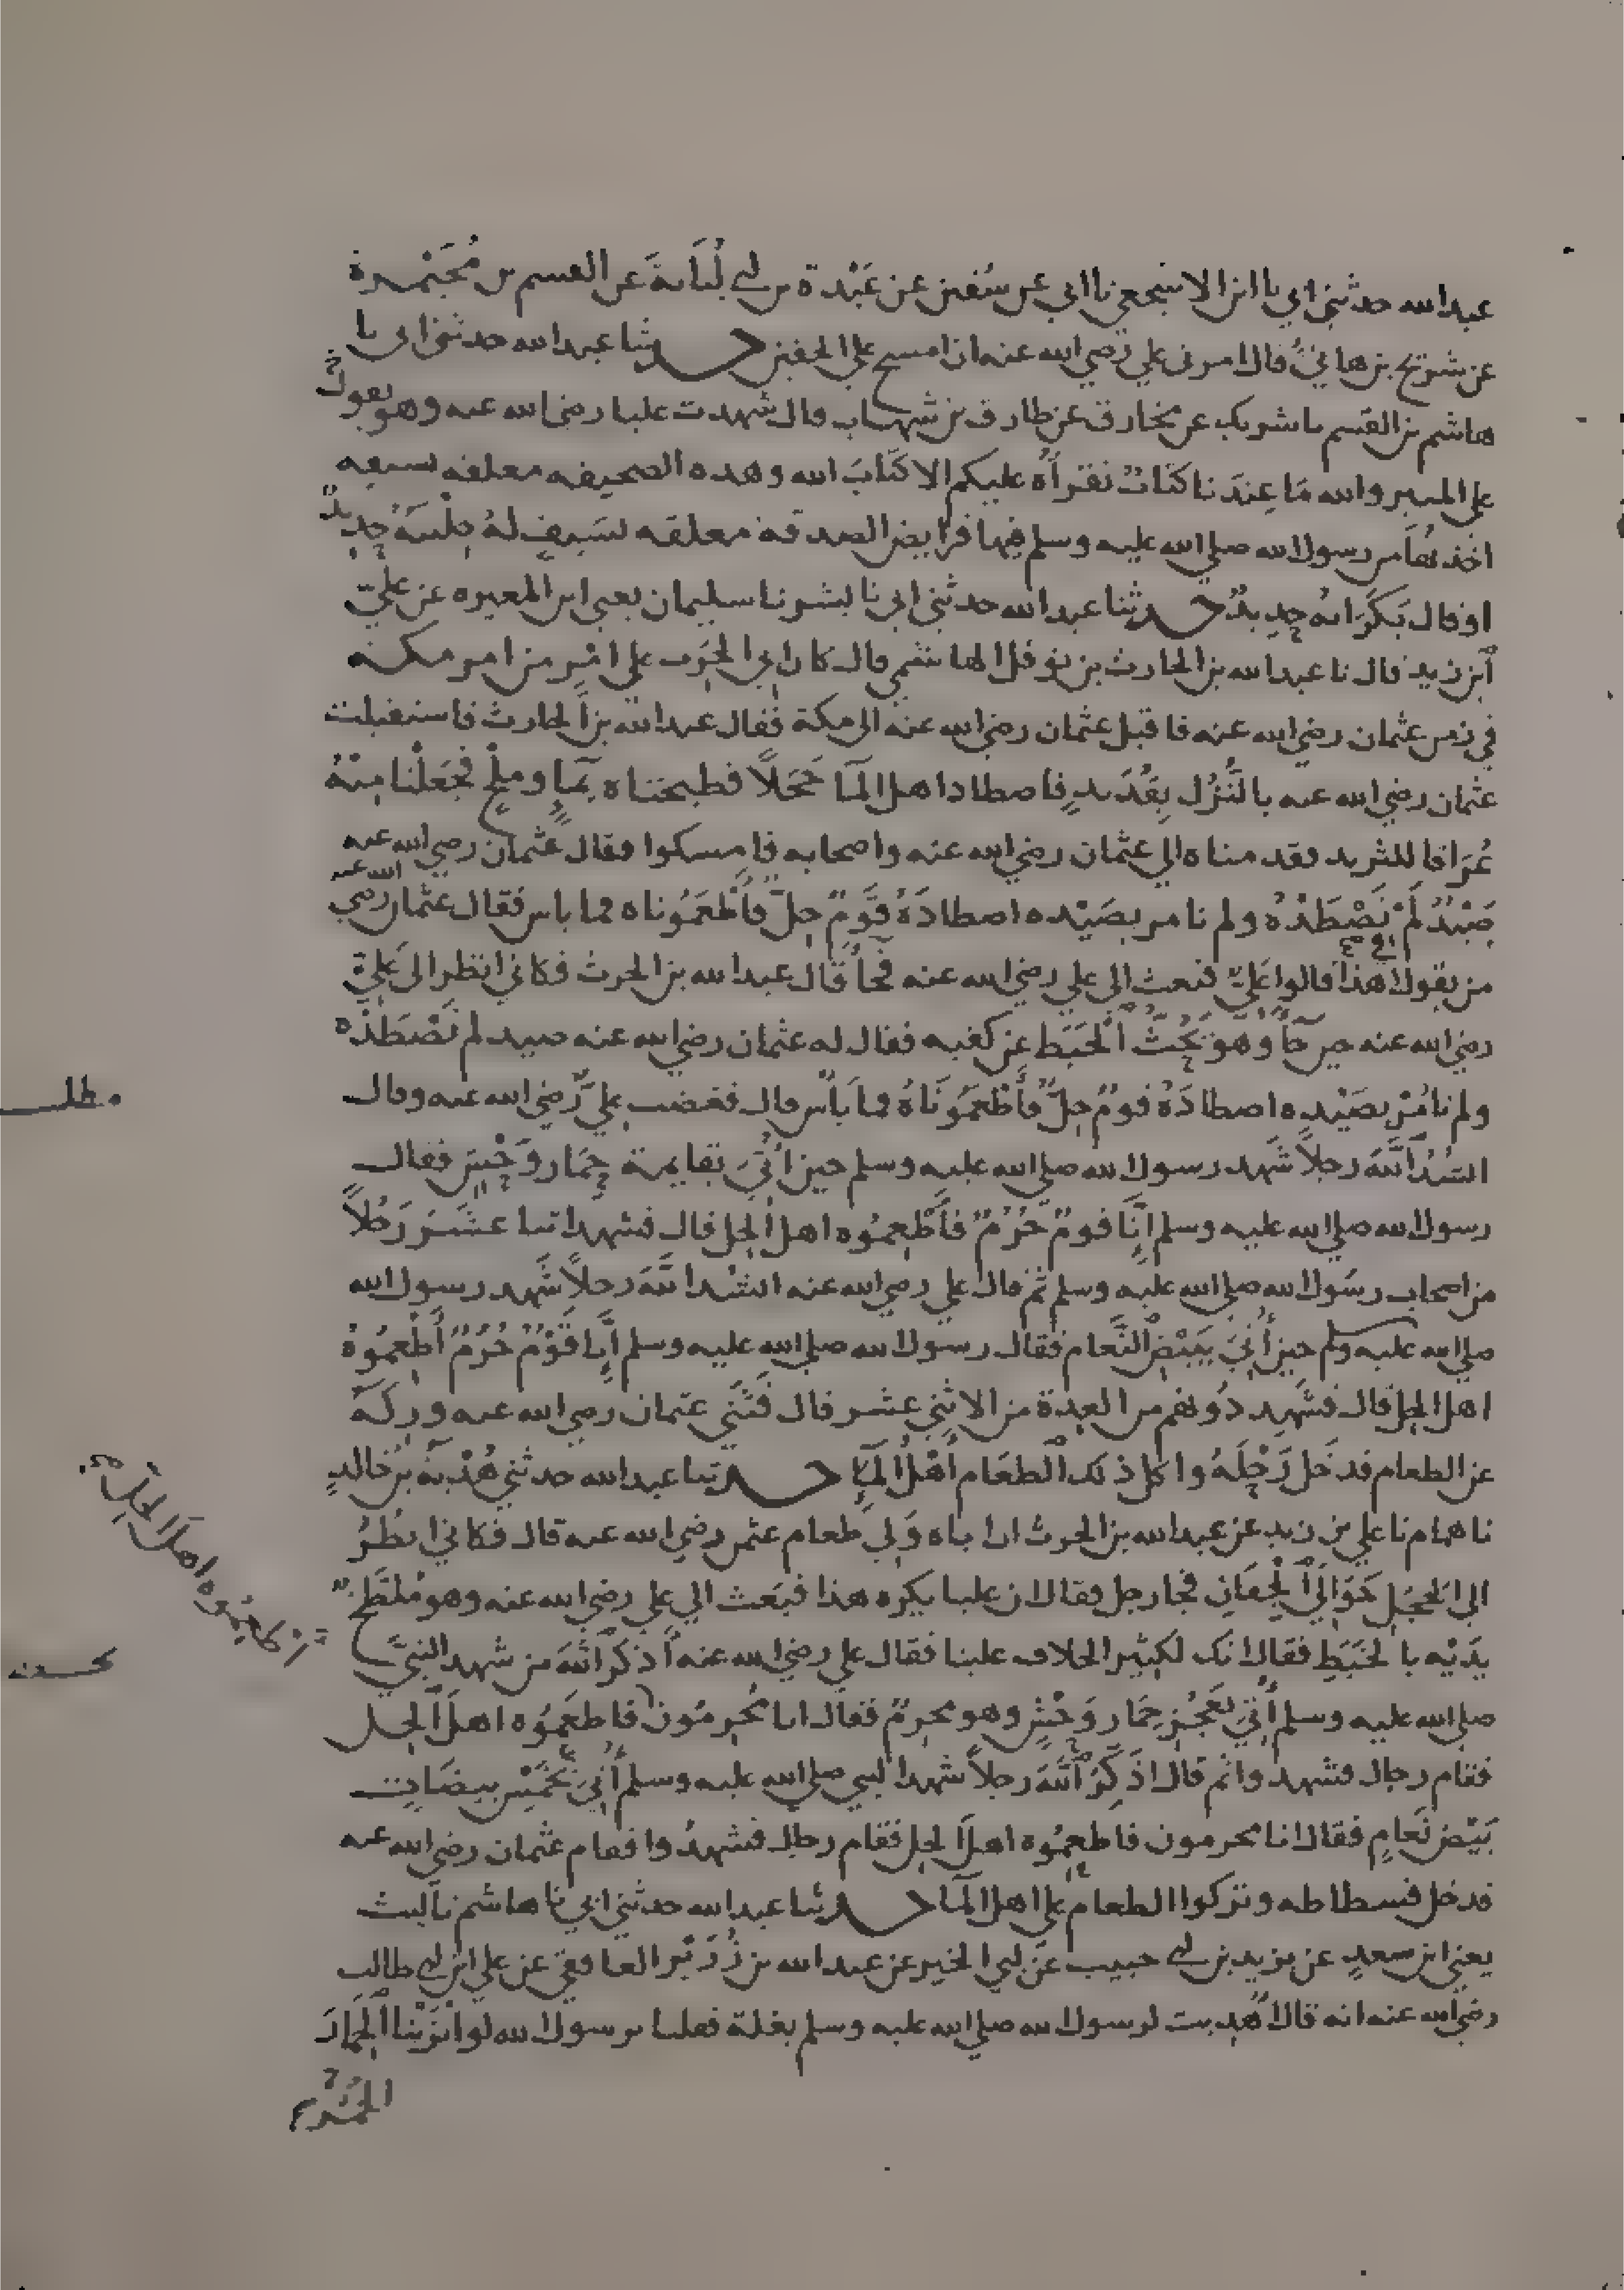 عبد الله حدثني ابي نا ابن الاشجعي نا ابي عن سفين عن عَبْدة بن ابي لُبَابةَ عن القسم بن مُخَيْمرة
عن شريح بن هانئ قال امرني علي رضي الله عنه ان امسح على الخفين حدثنا عبد الله حدثني ابي نا
هاشم بن القسم نا شريك عن مخارق عن طارق بن شهاب قال شهدت عليا رضي الله عنه وهو يقول
على المنبر والله مَا عِندَنا كتابٌ نقرأه عليكم الا كتابَ الله وهذه الصحيفه معلقه بسيفه
اخذتها من رسول الله صلى الله عليه وسلم فيها فرايض الصدقة معلقه بسَيفٍ لهُ حِلْيتهُ حديدٌ
او قال بَكَرَاتهُ حديدٌ حدثنا عبد الله حدثني ابي نا بشر نا سليمان يعني ابن المغيره عن علي
ابن زيد قال نا عبد الله بن الحارث بن نوفل الهاشمي قال كان ابي الحرث على امْرٍ من امر مكة
في زمن عثمان رضي الله عنه فاقبل عثمان رضي الله عنه الى مكة فقال عبد الله بن الحارث فاستقبلت
عثمان رضي الله عنه بالنُّزُل بِقُدَيدٍ فاصطاد اهل المآ حَجَلًا فطبخناه بمآٍ وملحٍ فجعَلْنا مِنْهُ
عُرَاقا للثريد فقدمناه الى عثمان رضي الله عنه واصحابه فامسكوا فقال عثمان رضي الله عنه
صَيْدٌ لَمْ نَصْطَدْهُ ولم نامر بصَيْده اصطادَهُ قَومٌ حِلٌّ فأطْعَمُوناه فما باس فقال عثمان رضي الله عنه
من يقول في هذا قالوا عَليٌّ فبعث الى علي رضي الله عنه فجآ قال عبد الله بن الحرث فكاني انظر الى عَلِيٍّ
رضي الله عنه حين جآ وهو يَحُتُّ الخَبَط عن كفيه فقال له عثمان رضي الله عنه صيد لم نَصْطَدْه
ولم نامُرْ بصَيْده اصطادَهُ قومٌ حِلٌّ فأطْعَمُونَاهُ فما بَأس قال فغضب عليٌّ رضي الله عنه وقال
انشُدُ اللهَ رجلاً شَهد رسول الله صلى الله عليه وسلم حين اُتِيَ بقايمة حِمَار وَحْشٍ فقال
رسول الله صلى الله عليه وسلم اِنَّا قومٌ حُرُمٌ فأَطْعِمُوه اهل الحِل قال فشهد اثنا عشَرَ رَجُلاً
من اصحاب رسُول الله صلى الله عليه وسلم ثم قال علي رضي الله عنه انشُد اللهَ رجلاً شَهد رسول الله
صلى الله عليه وسلم حين أُتِيَ بِبَيْضِ النَّعام فقال رسول الله صلى الله عليه وسلم اِنَّا قَوْمٌ حُرُمٌ أطْعِمُوهُ
اهل الحِل قال فشَهِد دُونهم من العِدة من الاثني عشر قال فَثَنَى عثمان رضي الله عنه وركَهُ
عن الطعام فدخَل رَحْلَهُ واكل ذلك الطعَام أَهْلُ المآءِ حدثنا عبد الله حدثني هُدْبَةُ بنُ خالدٍ
نا همام نا علي بن زيد عن عبد الله بن الحرث ان اباه وَلِيَ طعام عثمن رضي الله عنه قال فكاني انظُرُ
الى الحَجَل حَوَالَيِ الجِفَانِ فجا رجل فقال ان عليا يكره هذا فبَعث الى علي رضي الله عنه وهو مُلطَّخٌ
يَدَيْه بالخَبَطِ فقال انك لكثيرُ الخلاف علينا فقال علي رضي الله عنه أذكّرُ اللهَ من شهد النبيَّ
صلى الله عليه وسلم أُتِيَ بعَجُزِ حِمَار وَحْشٍ وهو محرمٌ فقال انا مُحْرِمُونَ فاطعِمُوه اهلَ الحِل
فقام رجال فشهدوا ثم قال اُذَكِّرُ اللهَ رجلاً شهد النبي صلى الله عليه وسلم أُتِيَ بخَمْسِ بيضَاتٍ
بَيْضِ نَعامٍ فقال انا محرمون فاطعِمُوه اهلَ الحِل فقام رجال فشهدُوا فقام عثمان رضي الله عنه
فدخل فسطاطه وتركوا الطعام على اهل المآ حدثنا عبد الله حدثني ابي نا هاشم نا ليث
يعني ابن سعدٍ عن يزيد بن ابي حبيب عن ابي الخير عن عبد الله بن زُرَيْر الغافقي عن علي ابن ابي طالب
رضي الله عنه انه قال اُهديت لرسول الله صلى الله عليه وسلم بغلة فقلنا يرسول الله لو انزَيْنا الحِمَارَ
مطلب
أطعِمُوه اهلَ الحلّ صح